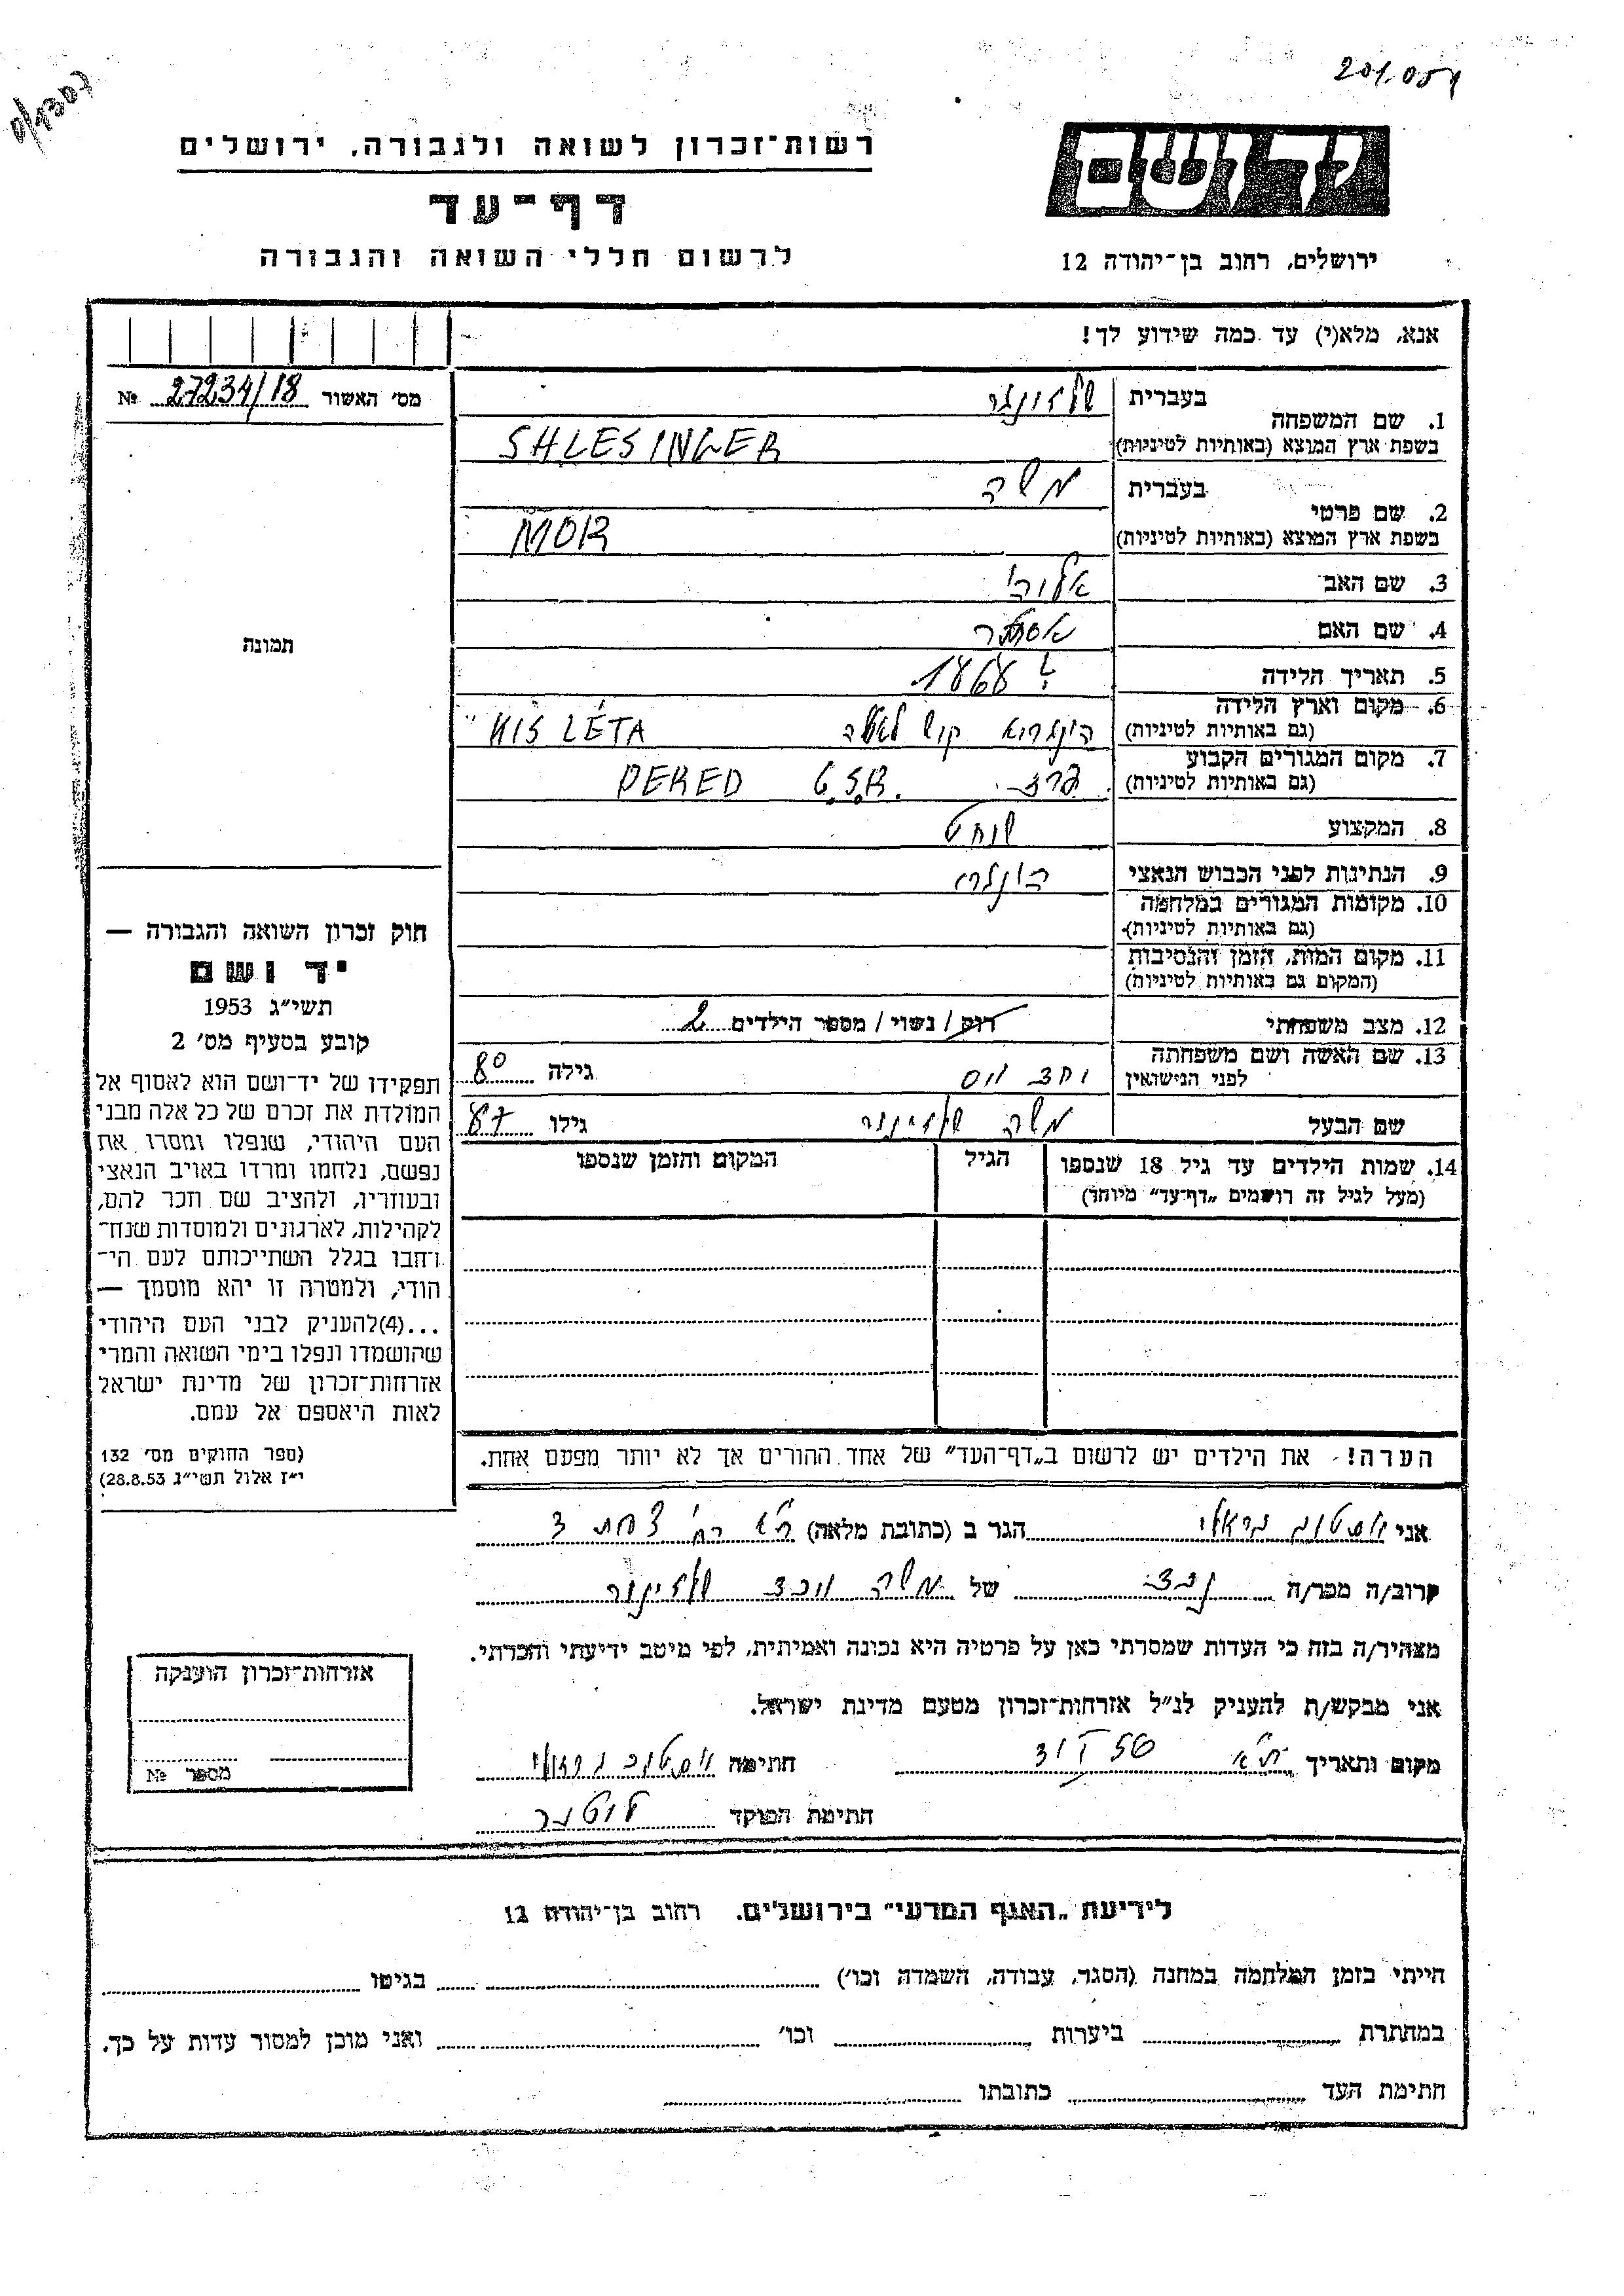 201.054
יד ושם
ירושלים, רחוב בן־יהודה 12
רשות־זכרון לשואה ולגבורה, ירושלים
דף־עד
לרשום חללי השואה והגבורה
אנא, מלא(י) עד כמה שידוע לך!
מס׳ האשור 27234/18 №
תמונה
חוק זכרון השואה והגבורה —
יד ושם
תשי״ג 1953
קובע בסעיף מס׳ 2
תפקידו של יד־ושם הוא לאסוף אל
המולדת את זכרם של כל אלה מבני
העם היהודי, שנפלו ומסרו את
נפשם, נלחמו ומרדו באויב הנאצי
ובעוזריו, ולהציב שם וזכר להם,
לקהילות, לארגונים ולמוסדות שנח־
רחבו בגלל השתייכותם לעם הי־
הודי, ולמטרה זו יהא מוסמך —
...(4)להעניק לבני העם היהודי
שהושמדו ונפלו בימי השואה והמרי
אזרחות־זכרון של מדינת ישראל
לאות היאספם אל עמם.
(ספר החוקים מס׳ 132
י״ז אלול תשי״ג 28.8.53)
1. שם המשפחה בעברית שלזינגר
בשפת ארץ המוצא (באותיות לטיניות) SHLESINGER
2. שם פרטי בעברית משה
בשפת ארץ המוצא (באותיות לטיניות) MOR
3. שם האב
4. שם האם אסתר
5. תאריך הלידה ? 1868
6. מקום וארץ הלידה (גם באותיות לטיניות) הונגריא קיש לאטה KIS LÉTA
7. מקום המגורים הקבוע (גם באותיות לטיניות) DERED Č.S.R.
8. המקצוע שוחט
9. הנתינות לפני הכבוש הנאצי הונגרי
10. מקומות המגורים במלחמה (גם באותיות לטיניות)
11. מקום המות, הזמן והנסיבות (המקום גם באותיות לטיניות)
12. מצב משפחתי רוק / נשוי / מספר הילדים 2
13. שם האשה ושם משפחתה לפני הנישואין גילה 80
שם הבעל משה שלזינגר גילו 87
14. שמות הילדים עד גיל 18 שנספו הגיל המקום והזמן שנספו
(מעל לגיל זה רושמים „דף־עד״ מיוחד)
הערה! את הילדים יש לרשום ב„דף־העד״ של אחד ההורים אך לא יותר מפעם אחת.
אני הגר ב (כתובת מלאה) ת״א רח׳ צפת 3
קרוב/ה מכר/ה נכד של משה שלזינגר
מצהיר/ה בזה כי העדות שמסרתי כאן על פרטיה היא נכונה ואמיתית, לפי מיטב ידיעתי והכרתי.
אני מבקש/ת להעניק לנ״ל אזרחות־זכרון מטעם מדינת ישראל.
מקום ותאריך ת״א חתימה
חתימת הפוקד
אזרחות־זכרון הוענקה
מספר №
לידיעת „האגף המדעי״ בירושלים. רחוב בן־יהודה 12
הייתי בזמן המלחמה במחנה (הסגר, עבודה, השמדה וכו׳) בגיטו
במחתרת ביערות וכו׳ ואני מוכן למסור עדות על כך.
חתימת העד כתובתו